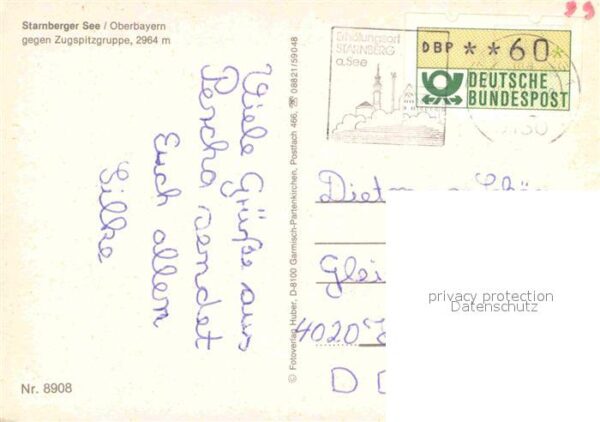 Starnberger See / Oberbayern
gegen Zugspitzgruppe, 2964 m
Viele Grüße aus
Percha sendet
Euch allen
Silke
Nr. 8908
© Fotoverlag Huber, D-8100 Garmisch-Partenkirchen, Postfach 466, ☎ 08821/59048
Erholungsort
STARNBERG
a.See
DBP **60*
DEUTSCHE
BUNDESPOST
Glei
4020
D D
privacy protection
Datenschutz